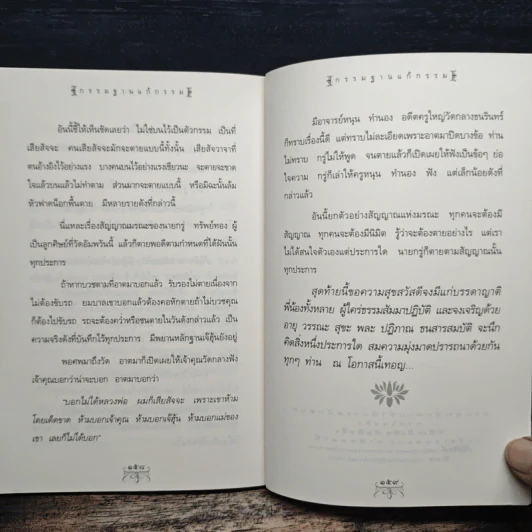 กรรมฐานแก้กรรม
อันนี้ชี้ให้เห็นชัดเลยว่า ไม่ใช่บนไว้เป็นตัวกรรม เป็นที่
เสียสัจจะ คนเสียสัจจะมักจะตายแบบนี้ทั้งนั้น เสียสัจจาวาจาที่
ตนอ้างอิงไว้อย่างแรง บางคนบนไว้อย่างแรงเชียวนะ จะตายจะขาด
ใจแล้วบนแล้วไม่ทำตาม ส่วนมากจะตายแบบนี้ หรือมิฉะนั้นล้ม
หัวฟาดน็อกพื้นตาย มีหลายรายดังที่กล่าวนี้
นี่แหละเรื่องสัญญาณมรณะของนายกรู่ ทรัพย์ทอง ผู้
เป็นลูกศิษย์ที่วัดอัมพวันนี้ แล้วก็ตายพอดีตามกำหนดที่ได้ฝันนั้น
ทุกประการ
ถ้าหากบวชตามที่อาตมาบอกแล้ว รับรองไม่ตายเนื่องจาก
ไม่ต้องขับรถ ยมบาลเขาบอกแล้วต้องคอหักตายถ้าไม่บวชคุณ
ก็ต้องไปขับรถ รถจะต้องคว่ำหรือชนตายในวันดังกล่าวแล้ว เป็น
ความจริงดังที่บันทึกไว้ทุกประการ มีพยานหลักฐานเจ๊ฮุ้นยังอยู่
พอศพมาถึงวัด อาตมาก็เปิดเผยให้เจ้าคุณวัดกลางฟัง
เจ้าคุณบอกว่าน่าจะบอก อาตมาบอกว่า
"บอกไม่ได้หลวงพ่อ ผมก็เสียสัจจะ เพราะเขาห้าม
โดยเด็ดขาด ห้ามบอกเจ้าคุณ ห้ามบอกเจ๊ฮุ้น ห้ามบอกแม่ของ
เขา เลยก็ไม่ได้บอก"
๑๕๘
กรรมฐานแก้กรรม
มีอาจารย์หนุน ทำนอง อดีตครูใหญ่วัดกลางธนรินทร์
ก็ทราบเรื่องนี้ดี แต่ทราบไม่ละเอียดเพราะอาตมาปิดบางข้อ ท่าน
ไม่ทราบ กรู่ไม่ให้พูด จนตายแล้วก็เปิดเผยให้ฟังเป็นข้อๆ ย่อ
ใจความ กรู่ก็เล่าให้ครูหนุน ทำนอง ฟัง แต่เล็กน้อยดังที่
กล่าวแล้ว
อันนี้ยกตัวอย่างสัญญาณแห่งมรณะ ทุกคนจะต้องมี
สัญญาณ ทุกคนจะต้องมีนิมิต รู้ว่าจะต้องตายอย่างไร แต่เรา
ไม่ได้สนใจตัวเองแต่ประการใด นายกรู่ก็ตายตามสัญญาณนั้น
ทุกประการ
สุดท้ายนี้ขอความสุขสวัสดีจงมีแก่บรรดาญาติ
พี่น้องทั้งหลาย ผู้ใคร่ธรรมสัมมาปฏิบัติ และจงเจริญด้วย
อายุ วรรณะ สุขะ พละ ปฏิภาณ ธนสารสมบัติ จะนึก
คิดสิ่งหนึ่งประการใด สมความมุ่งมาดปรารถนาด้วยกัน
ทุกๆ ท่าน ณ โอกาสนี้เทอญ...
๑๕๙